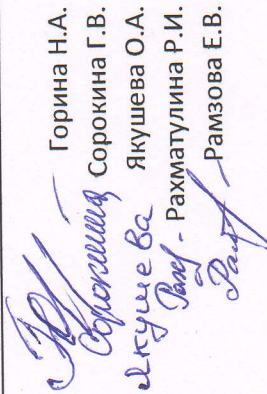 Горина Н.А.
Сорокина Сорокина Г.В.
Якушева Якушева О.А.
Рахматулина Р.И.
Рамзова Е.В.